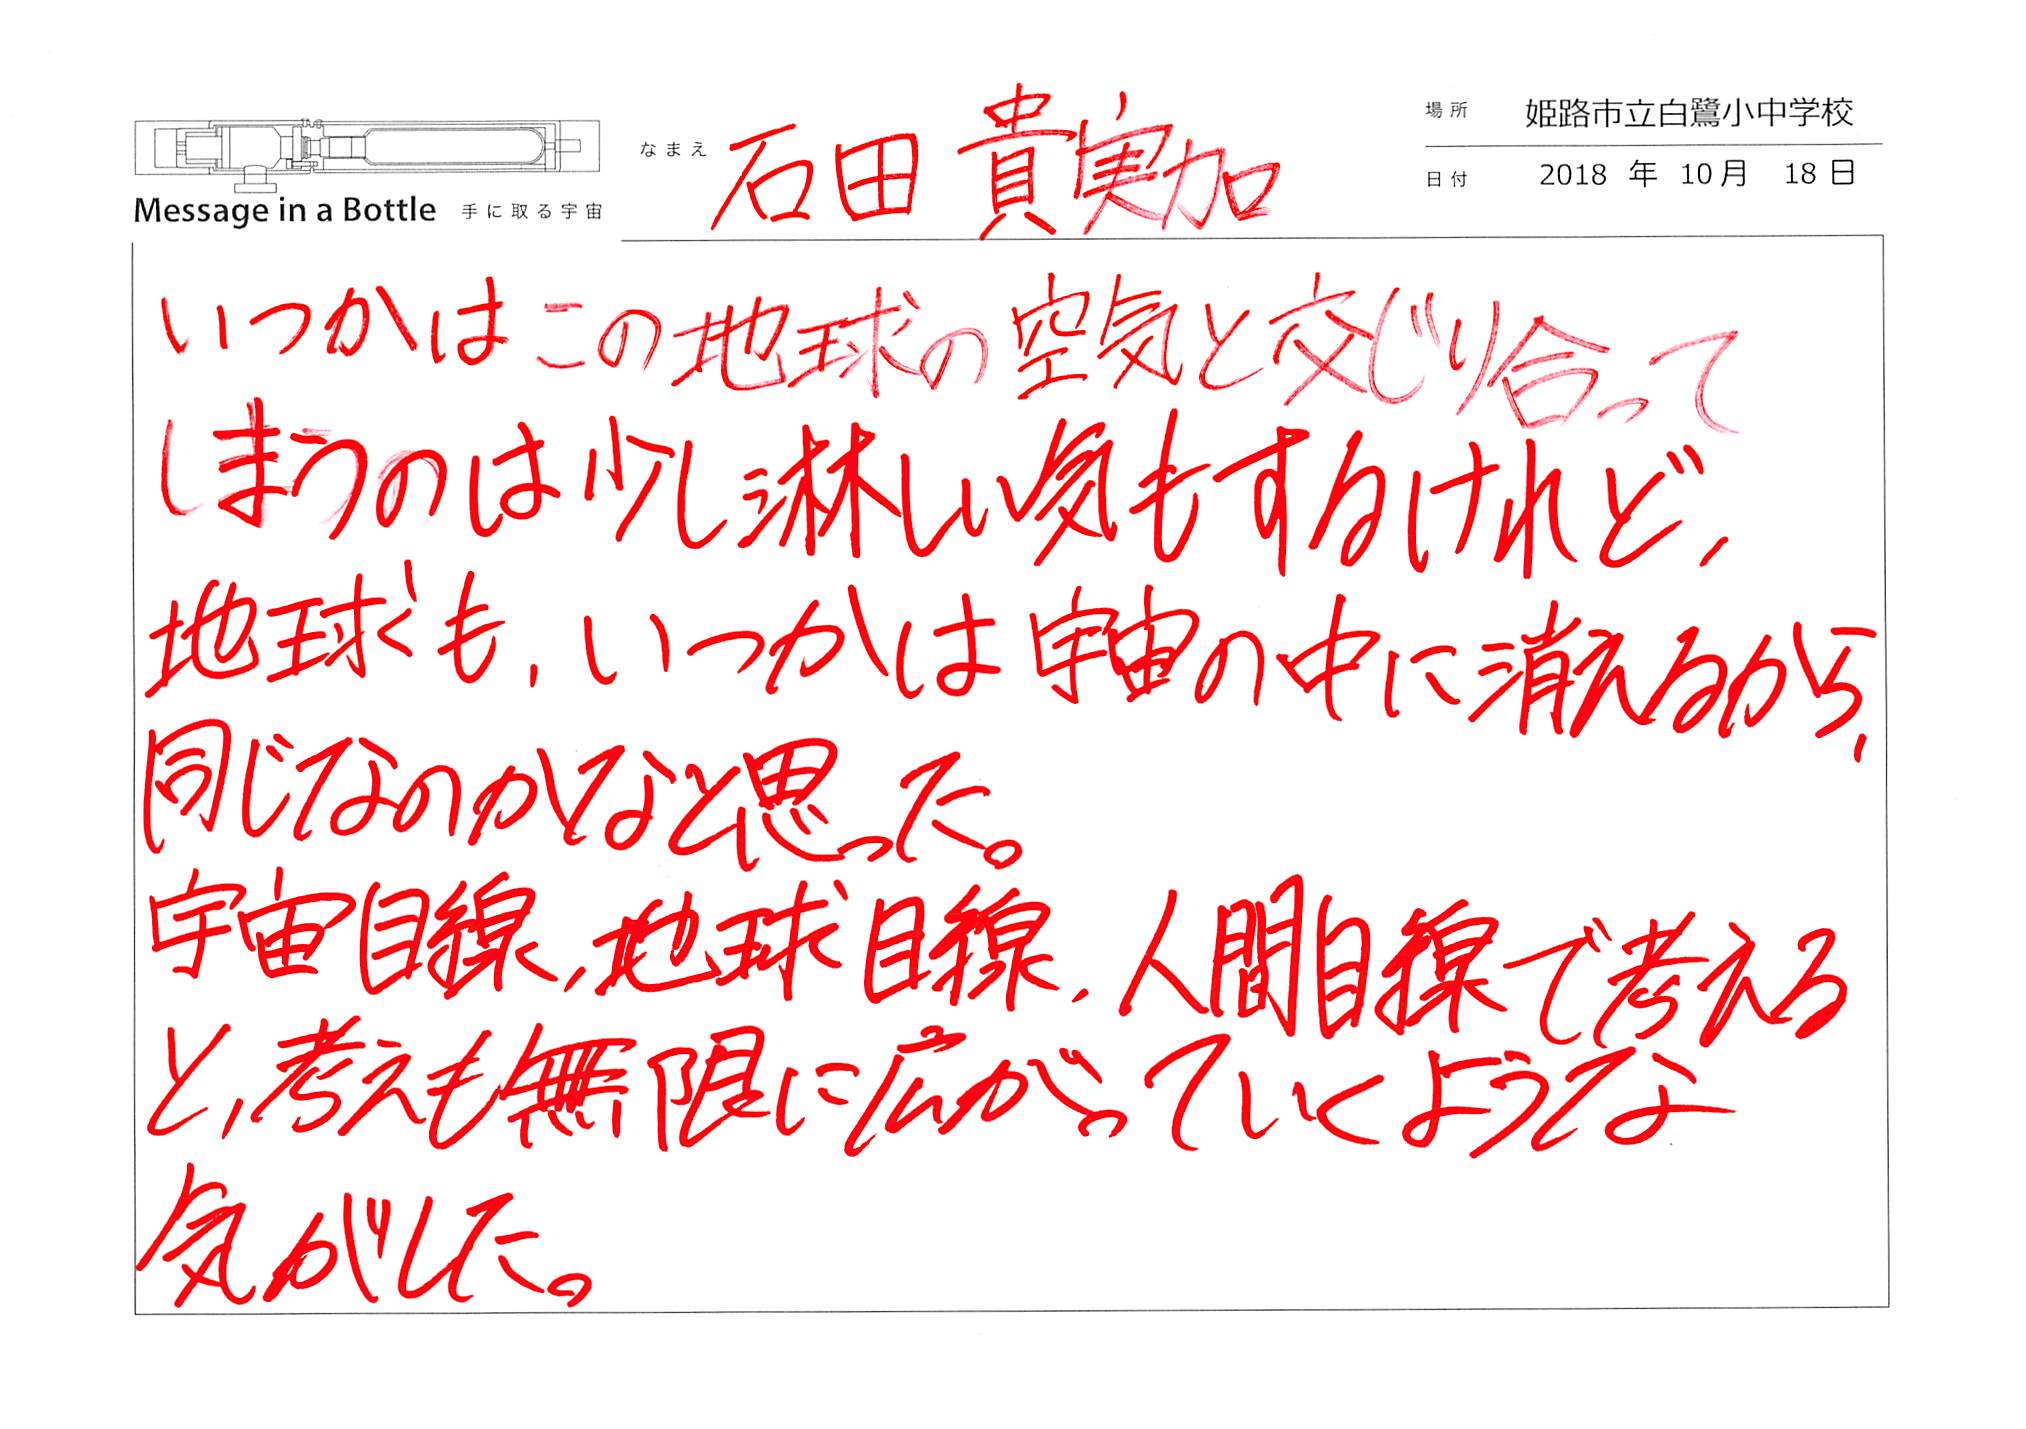 Message in a Bottle 手に取る宇宙
なまえ 石田 貴実加
場所 姫路市立白鷺小中学校
日付 2018 年 10月 18日
いつかはこの地球の空気と交じり合って
しまうのは少し淋しい気もするけれど、
地球も、いつかは宇宙の中に消えるから、
同じなのかなと思った。
宇宙目線、地球目線、人間目線で考える
と、考えも無限に広がっていくような
気がした。